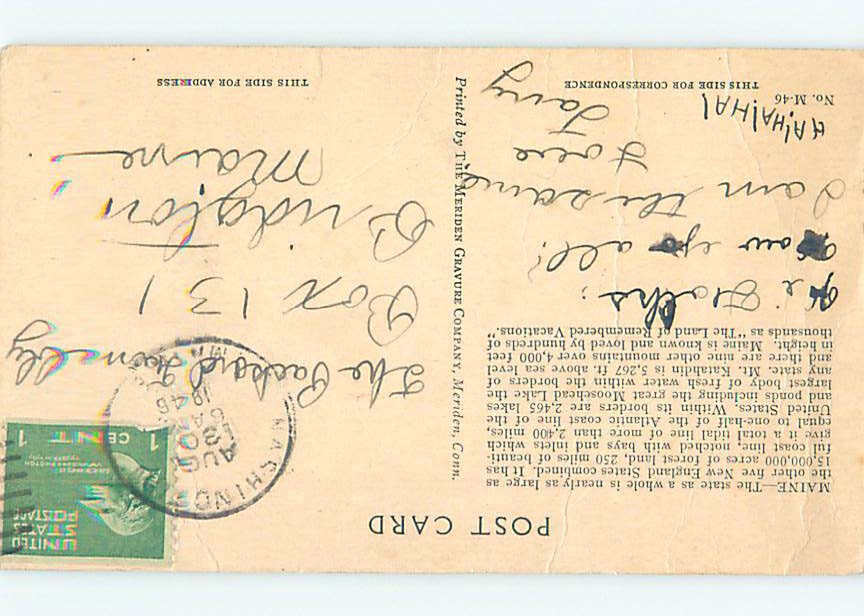 POST CARD
MAINE—The state as a whole is nearly as large as
the other five New England States combined. It has
15,000,000 acres of forest land, 250 miles of beauti-
ful coast line, notched with bays and inlets which
give it a total tidal line of more than 2,400 miles,
equal to one-half of the Atlantic coast line of the
United States. Within its borders are 2,465 lakes
and ponds including the great Moosehead Lake the
largest body of fresh water within the borders of
any state. Mt. Katahdin is 5,267 ft. above sea level
and there are nine other mountains over 4,000 feet
in height. Maine is known and loved by hundreds of
thousands as "The Land of Remembered Vacations."
Hi Folks:
How all?
I am the same
HA!HA!HA!
No. M-46
THIS SIDE FOR CORRESPONDENCE
Printed by THE MERIDEN GRAVURE COMPANY, Meriden, Conn.
UNITED
STATES
POSTAGE
1 CENT 1
AUG
20
1946
The Packard Family
Box 131
Bridgton
Maine
THIS SIDE FOR ADDRESS